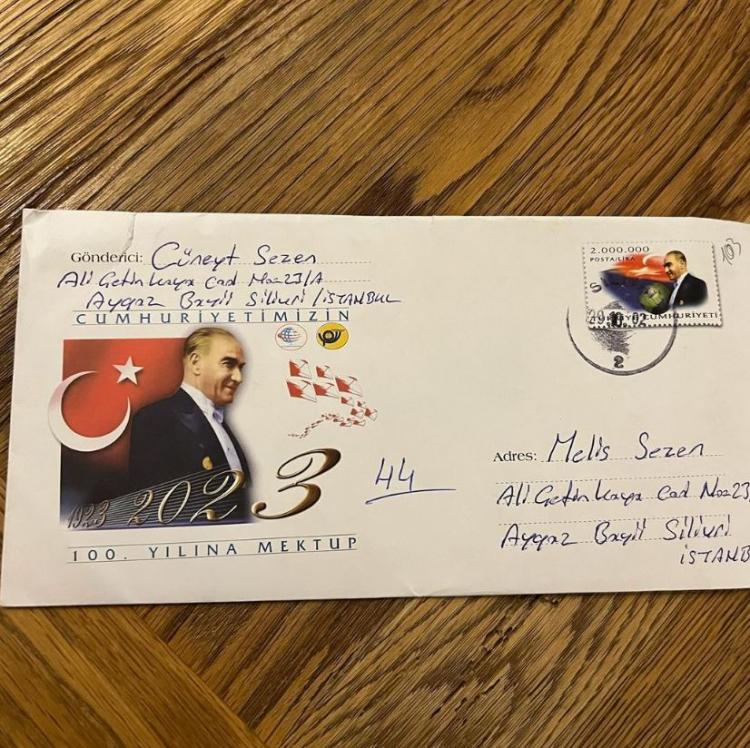 Gönderici: Cüneyt Sezen
Ali Çetin kaya cad No=23/A
Aygaz Bayii Silivri / İSTANBUL
CUMHURİYETİMİZİN
1923 2023
100. YILINA MEKTUP
44
2.000.000
POSTA/LİRA
CUMHURİYETİ
29.10.02
2
103
Adres: Melis Sezen
Ali Çetin kaya cad No=23
Aygaz Bayii Silivri
İSTANB